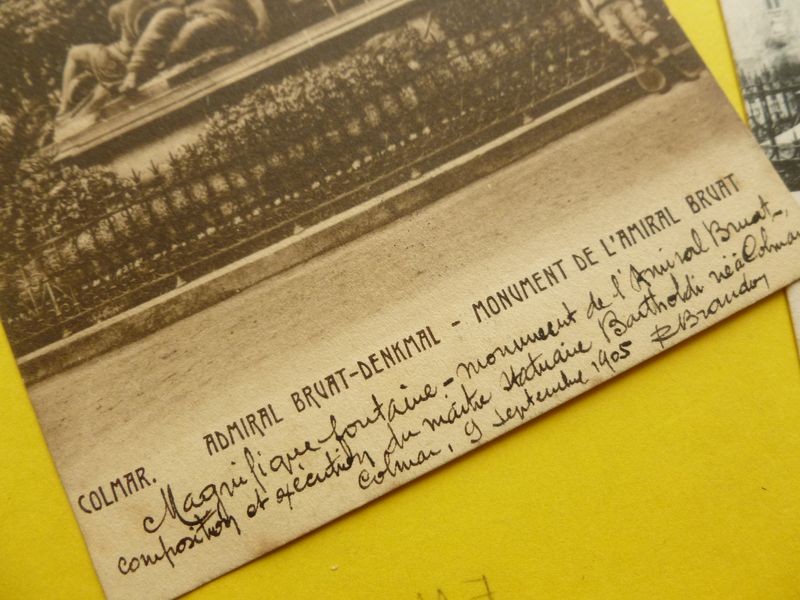 COLMAR. ADMIRAL BRUAT-DENKMAL - MONUMENT DE L'AMIRAL BRUAT
Magnifique fontaine - monument de l'Amiral Bruat -,
composition et exécution du maître statuaire Bartholdi né à Colmar
Colmar, 9 septembre 1905